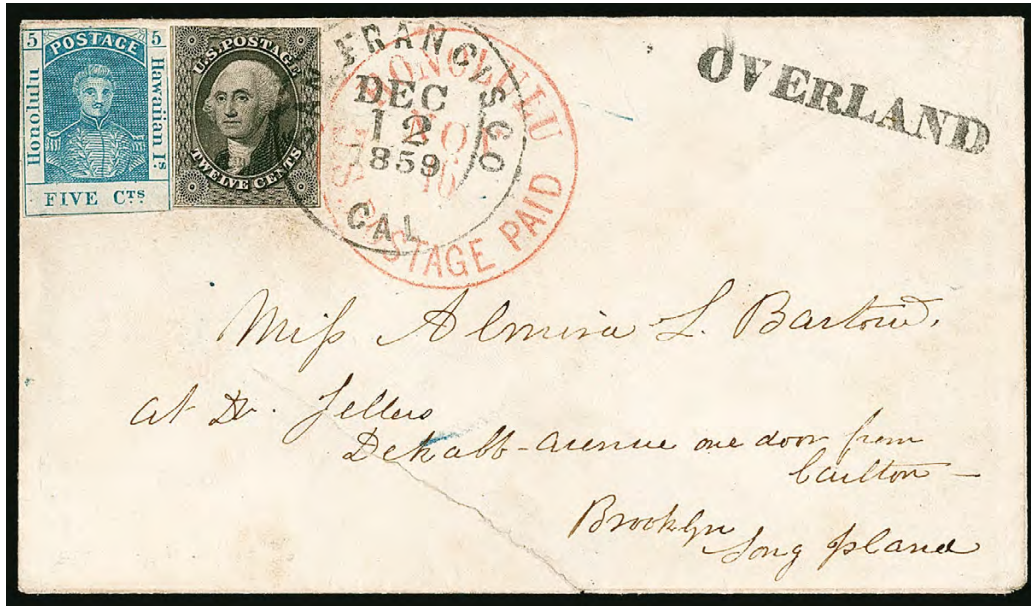 5 POSTAGE 5
Honolulu
Hawaiian Is.
FIVE Cts
U.S. POSTAGE
TWELVE CENTS
SAN FRANCISCO
DEC
12
1859
CAL
HONOLULU
NOV
U.S. POSTAGE PAID
OVERLAND
Miss Almira L.
at Dr. Sellers
Dekalb-avenue one door from
Carlton
Brooklyn
Long Island